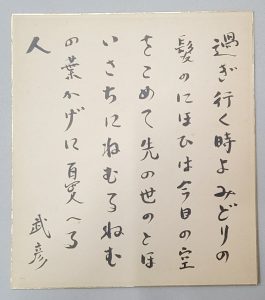 過ぎ行く時よみどりの
髪のにほひは今日の空
をこめて先の世のとほ
いさちにねむるねむ
の葉かげに百実へる
人
武彦